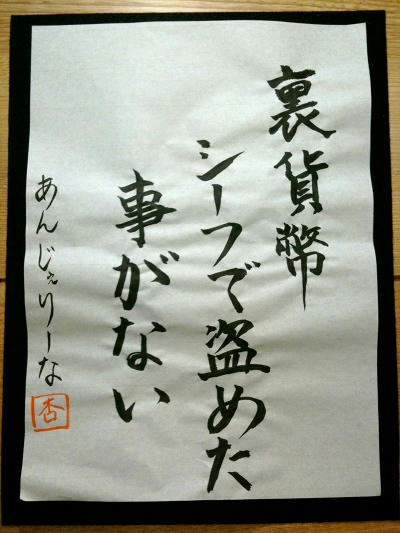 裏貨幣
シーフで盗めた
事がない
あんじぇりーな
杏